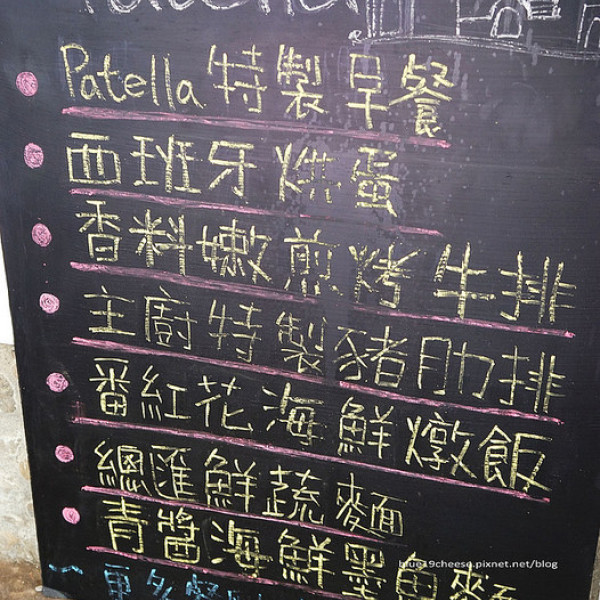 Patella
Patella 特製早餐
西班牙烘蛋
香料嫩煎烤牛排
主廚特製豬肋排
番紅花海鮮燉飯
總匯鮮蔬麵
青醬海鮮墨魚麵
blue19cheese.pixnet.net/blog
更多餐